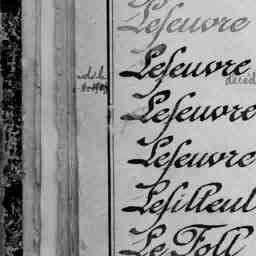 Lefeuvre
Lefeuvre
décéd
Lefeuvre
Lefeuvre
Lefilleul
Le Foll